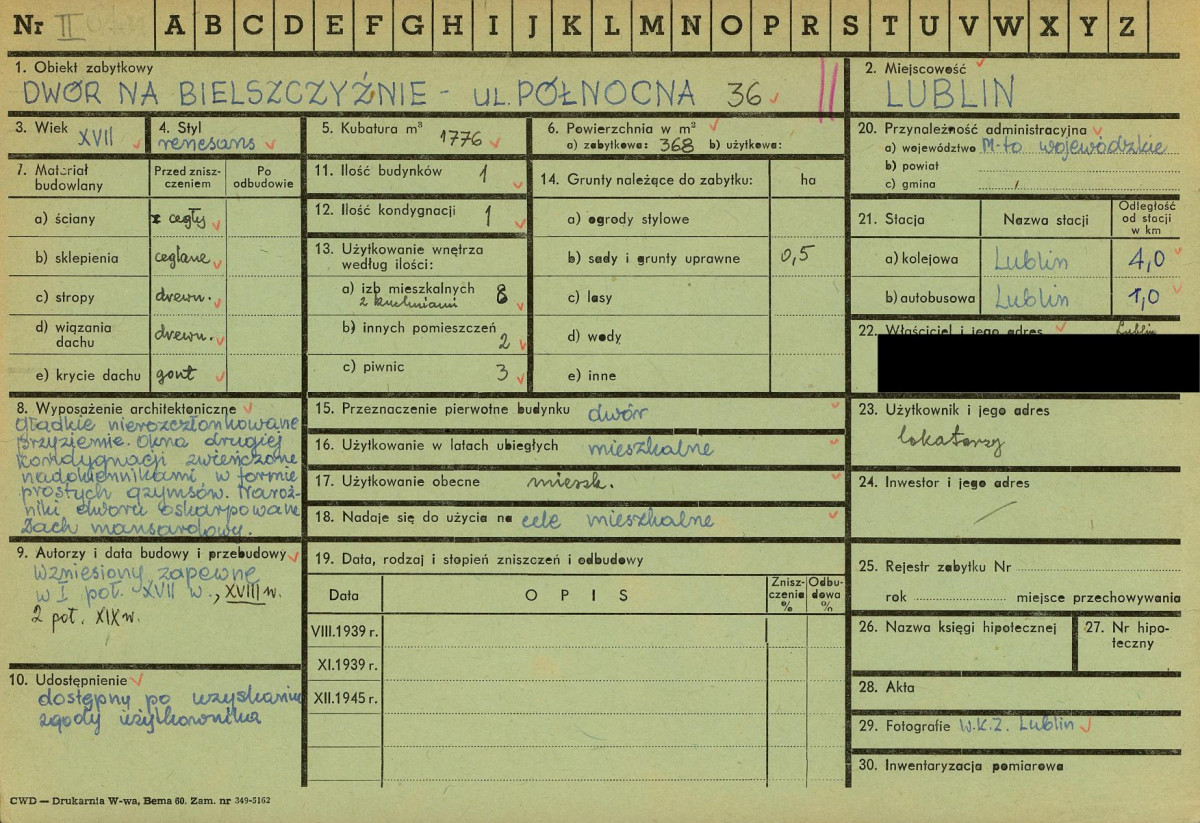 Nr II A B C D E F G H I J K L M N O P R S T U V W X Y Z
1. Obiekt zabytkowy
DWÓR NA BIELSZCZYŹNIE - UL. PÓŁNOCNA 36
2. Miejscowość
LUBLIN
3. Wiek
XVII
4. Styl
renesans
5. Kubatura m³ 1776
6. Powierzchnia w m²
a) zabytkowa: 368 b) użytkowa:
20. Przynależność administracyjna
a) województwo M-to wojewódzkie
b) powiat
c) gmina
7. Materiał budowlany
Przed znisz-
czeniem
Po
odbudowie
a) ściany z cegły
b) sklepienia ceglane
c) stropy drewn.
d) wiązania
dachu drewn.
e) krycie dachu gont
11. Ilość budynków 1
12. Ilość kondygnacji 1
13. Użytkowanie wnętrza
według ilości:
a) izb mieszkalnych 8
z kuchniami
b) innych pomieszczeń
2
c) piwnic 3
14. Grunty należące do zabytku: ha
a) ogrody stylowe
b) sady i grunty uprawne 0,5
c) lasy
d) wody
e) inne
21. Stacja Nazwa stacji
Odległość
od stacji
w km
a) kolejowa Lublin 4,0
b) autobusowa Lublin 1,0
22. Właściciel i jego adres Lublin
8. Wyposażenie architektoniczne
Gładkie nierozczłonkowane
przyziemie. Okna drugiej
kondygnacji zwieńczone
nadokiennikami w formie
prostych gzymsów. Naroż-
niki dworu oskarpowane
Dach mansardowy.
15. Przeznaczenie pierwotne budynku dwór
16. Użytkowanie w latach ubiegłych mieszkalne
17. Użytkowanie obecne mieszk.
18. Nadaje się do użycia na cele mieszkalne
23. Użytkownik i jego adres
lokatorzy
24. Inwestor i jego adres
9. Autorzy i data budowy i przebudowy
Wzniesiony zapewne
w I poł. XVII w., XVIII w.
2 poł. XIX w.
10. Udostępnienie
dostępny po uzyskaniu
zgody użytkownika
19. Data, rodzaj i stopień zniszczeń i odbudowy
Data OPIS
Znisz-
czenia
%
Odbu-
dowa
%
VIII.1939 r.
XI.1939 r.
XII.1945 r.
25. Rejestr zabytku Nr
rok miejsce przechowywania
26. Nazwa księgi hipotecznej
27. Nr hipo-
teczny
28. Akta
29. Fotografie W.K.Z. Lublin
30. Inwentaryzacja pomiarowa
CWD — Drukarnia W-wa, Bema 60. Zam. nr 349-5162